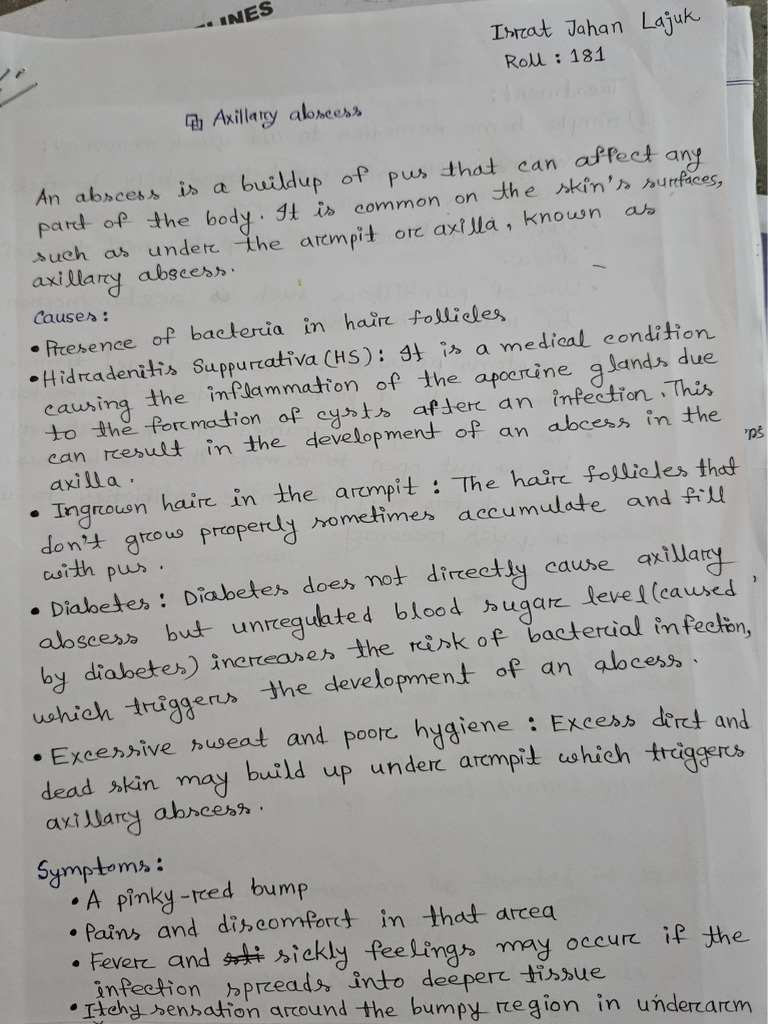 LINES
Israt Jahan Lajuk
Roll : 181
Axillary abscess
An abscess is a buildup of pus that can affect any
part of the body. It is common on the skin's surfaces,
such as under the armpit or axilla, known as
axillary abscess.
Causes:
• Presence of bacteria in hair follicles
• Hidradenitis Suppurativa (HS): It is a medical condition
causing the inflammation of the apocrine glands due
to the formation of cysts after an infection. This
can result in the development of an abcess in the
axilla.
• Ingrown hair in the armpit : The hair follicles that
don't grow properly sometimes accumulate and fill
with pus.
• Diabetes : Diabetes does not directly cause axillary
abscess but unregulated blood sugar level (caused
by diabetes) increases the risk of bacterial infection,
which triggers the development of an abcess.
• Excessive sweat and poor hygiene : Excess dirt and
dead skin may build up under armpit which triggers
axillary abscess.
Symptoms:
• A pinky-red bump
• Pains and discomfort in that area
• Fever and sickly feelings may occur if the
infection spreads into deeper tissue
• Itchy sensation around the bumpy region in underarm